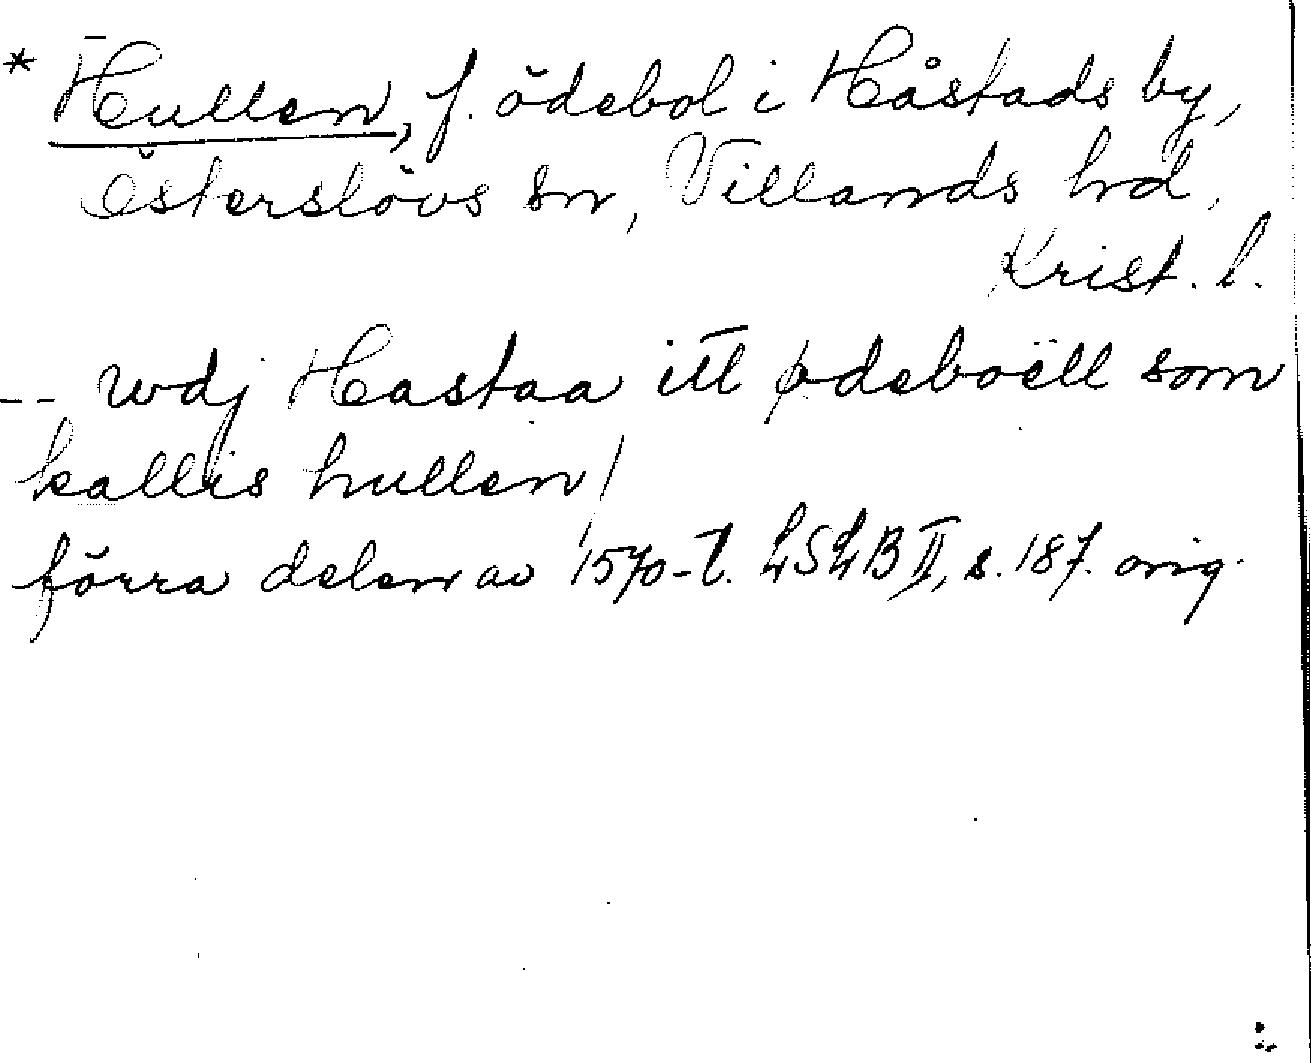 * Hullen, f. ödebol i Håstads by,
Österslövs sn, Villands hd,
Krist. l.
-- wdj Hastaa itt ødeboëll som
kallis hullen/
förra delen av 1570-t. LSLB II, s. 187. orig.